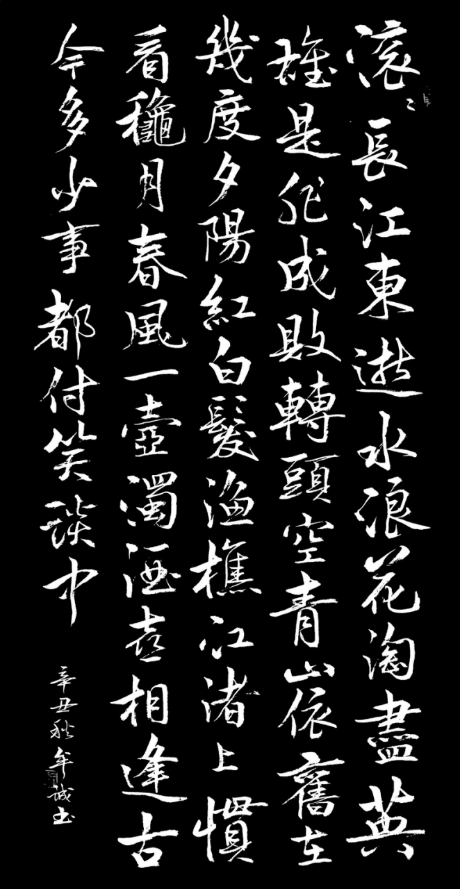 滚〻長江東逝水浪花淘盡英
雄是非成敗轉頭空青山依舊在
幾度夕陽紅白髮漁樵江渚上慣
看穐月春風一壺濁酒喜相逢古
今多少事都付笑談中
辛丑秋誠书